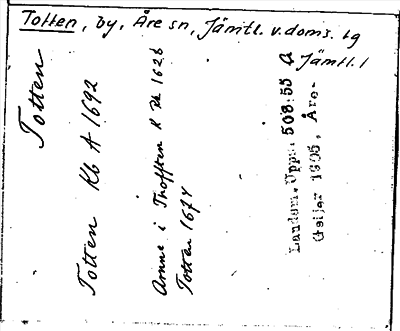 Totten, by, Åre sn, Jämtl. v. doms. tg
Jämtl. l
Totten
Totten Kb A 1692
Anne i Thofften K Rk 1626
Totten 1674
Landsm. Upps. 508:55 a
Geijer 1905, Åre-